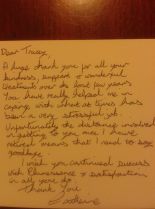 Dear Tracey,
A huge thank you for all your
kindness, support & wonderful
treatments over the last few years.
You have really helped me in
coping with what at times has
been a very stressful job.
Unfortunately the distance involved
in getting to you once I have
retired means that I need to say
goodbye.
I wish you continued success
with & satisfaction
in all you do.
Thank you